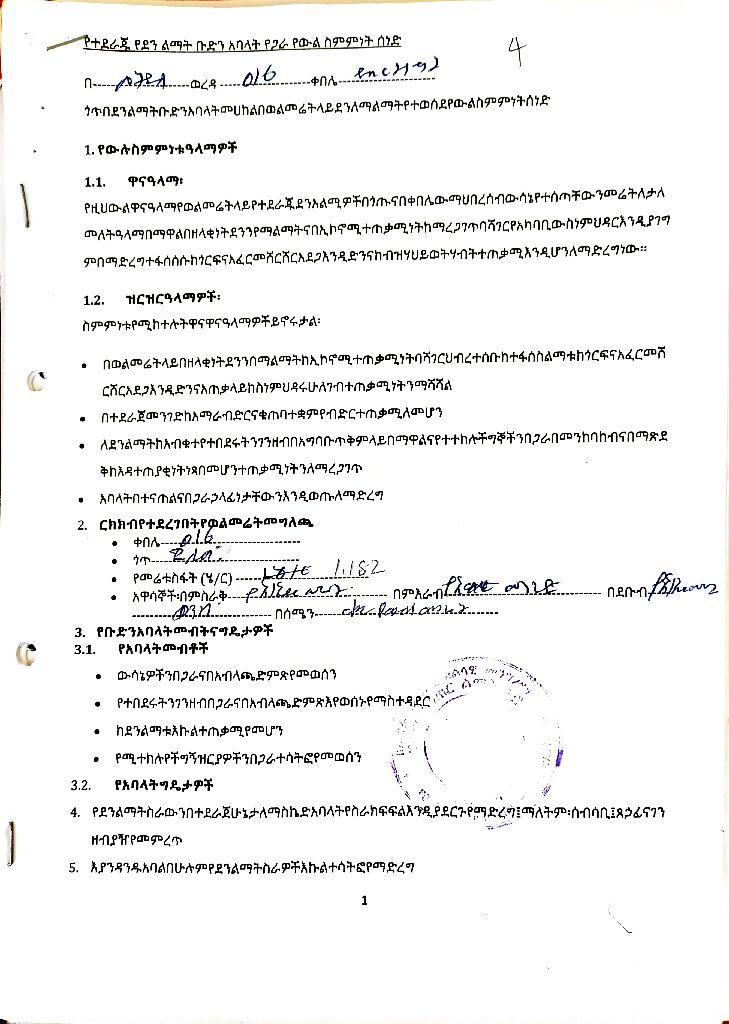 የተደራጁ የደን ልማት ቡድን አባላት የጋራ የውል ስምምነት ሰነድ
4
በ------ ወረዳ ----- 016 ----- ቀበሌ
ጎጥበደንልማትቡድንአባላትመሀከልበወልመሬትላይደንለማልማትየተወሰደየውልስምምነትሰነድ
1. የውሉስምምነቱዓላማዎች
1.1. ዋናዓላማ፡
የዚህውልዋናዓላማየወልመሬትላይየተደራጁደንአልሚዎችበጎጡናበቀበሌውማህበረሰብውሳኔየተሰጣቸውንመሬትለታለ
መለትዓላማበማዋልበዘላቂነትደንንየማልማትናበኢኮኖሚተጠቃሚነትከማረጋገጥባሻገርየአካባቢውስነምህዳርእንዲያገግ
ምበማድረግተፋሰሰሱከጎርፍናአፈርመሸርሸርአደጋእንዲድንናከብዝሃህይወትሃብትተጠቃሚእንዲሆንለማድረግነው፡፡
1.2. ዝርዝርዓላማዎች፡
ስምምነቱየሚከተሉትዋናዋናዓላማዎችይኖሩታል፡
• በወልመሬትላይበዘላቂነትደንንበማልማትከኢኮኖሚተጠቃሚነትባሻገርህብረተሰቡከተፋሰስልማቱከጎርፍናአፈርመሸ
ርሸርአደጋእንዲድንናአጠቃላይከስነምህዳሩሁለገብተጠቃሚነትንማሻሻል
• በተደራጀመንገድከአማራብድርናቁጠባተቋምየብድርተጠቃሚለመሆን
• ለደንልማትከአብቁተየተበደሩትንገንዘብበአግባቡጥቅምላይበማዋልናየተተከሉችግኞችንበጋራበመንከባከብናበማጽደ
ቅከእዳተጠያቂነትነጻበመሆንተጠቃሚነትንለማረጋገጥ
• አባላትበተናጠልናበጋራኃላፊነታቸውንእንዲወጡለማድረግ
2. ርክክብየተደረገበትየወልመሬትመግለጫ
• ቀበሌ------016------
• ጎጥ------
• የመሬቱስፋት (ሄ/ር) ------ 1.182
• አዋሳኞች፡በምስራቅ------ በምእራብ------ በደቡብ
------ በሰሜን------
3. የቡድንአባላትመብትናግዴታዎች
3.1. የአባላትመብቶች
• ውሳኔዎችንበጋራናበአብላጫድምጽየመወሰን
• የተበደሩትንገንዘብበጋራናበአብላጫድምጽእየወሰኑየማስተዳደር
• ከደንልማቱእኩልተጠቃሚየመሆን
• የሚተከሉየችግኝዝርያዎችንበጋራተሳትፎየመወሰን
3.2. የአባላትግዴታዎች
4. የደንልማትስራውንበተደራጀሁኔታለማስኬድአባላትየስራክፍፍልእንዲያደርጉየማድረግ፤ማለትም፡ሰብሳቢ፤ጸኃፊናገን
ዘብያዥየመምረጥ
5. እያንዳንዱአባልበሁሉምየደንልማትስራዎችእኩልተሳትፎየማድረግ
1